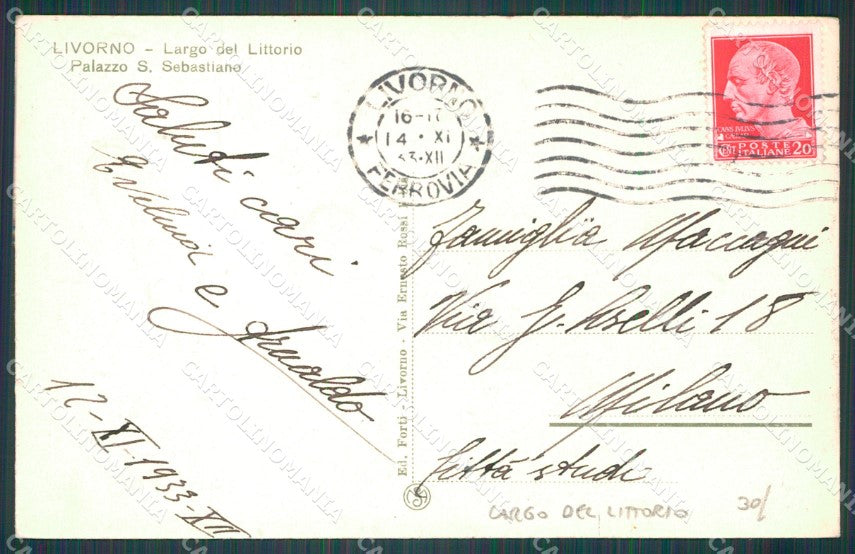 LIVORNO – Largo del Littorio
Palazzo S. Sebastiano
Saluti cari
Evelina e Arnaldo
12-XI-1933-XII
LIVORNO
16-17
14 · XI
33·XII
FERROVIA
CAIVS IVLIVS
CAESAR
POSTE
ITALIANE 20
Famiglia Maccagni
Via G. Aselli 18
Milano
Città studi
Ed. Forti - Livorno - Via Ernesto Rossi
LARGO DEL LITTORIO
30/
CARTOLINOMANIA